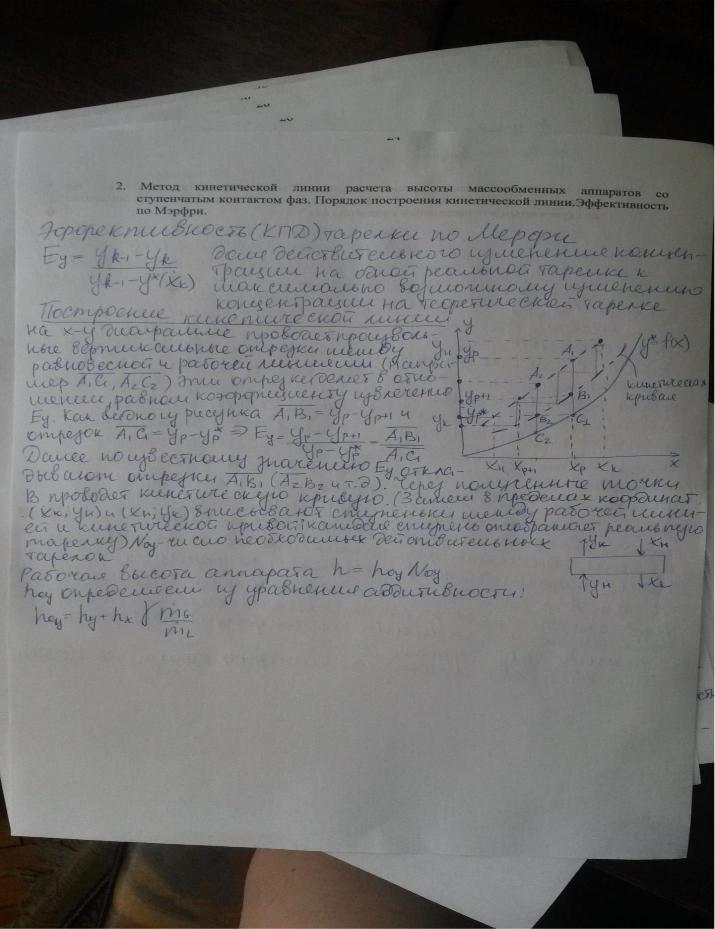 2. Метод кинетической линии расчета высоты массообменных аппаратов со
ступенчатым контактом фаз. Порядок построения кинетической линии.Эффективность
по Мэрфри.
Эффективность (КПД) тарелки по Мерфи
Ey = (yk-1 - yk) / (yk-1 - y*(xk)) доля действительного изменения концен-
трации на одной реальной тарелке к
максимально возможному изменению
концентрации на теоретической тарелке
Построение кинетической линии
на x-y диаграмме проводят произволь-
ные вертикальные отрезки между
равновесной и рабочей линиями. (напри-
мер A1C1, A2C2) Эти отрезки делят в отно-
шении, равном коэффициенту извлечения
Ey. Как видно из рисунка A1B1 = yp - yp+1 и
отрезок A1C1 = yp - yp* ⇒ Ey = (yp - yp+1) / (yp - yp*) = A1B1 / A1C1
Далее по известному значению Ey откла-
дывают отрезки A1B1 (A2B2 и т.д). Через полученные точки
B проводят кинетическую кривую. (Затем в пределах координат
(xк, yн) и (xн; yк) вписывают ступеньки между рабочей лини-
ей и кинетической кривой; каждая ступень отображает реальную
тарелку) Noy - число необходимых действительных
тарелок
Рабочая высота аппарата h = hoy Noy
hoy определяем из уравнения аддитивности:
hoy = hy + hx γ mG / mL
y
yн
yp
yp+1
yp*
yк
A1
A2
B1
B2
C1
C2
y* f(x)
кинетическая
кривая
xн
xp+1
xp
xк
x
yк
xн
yн
xк